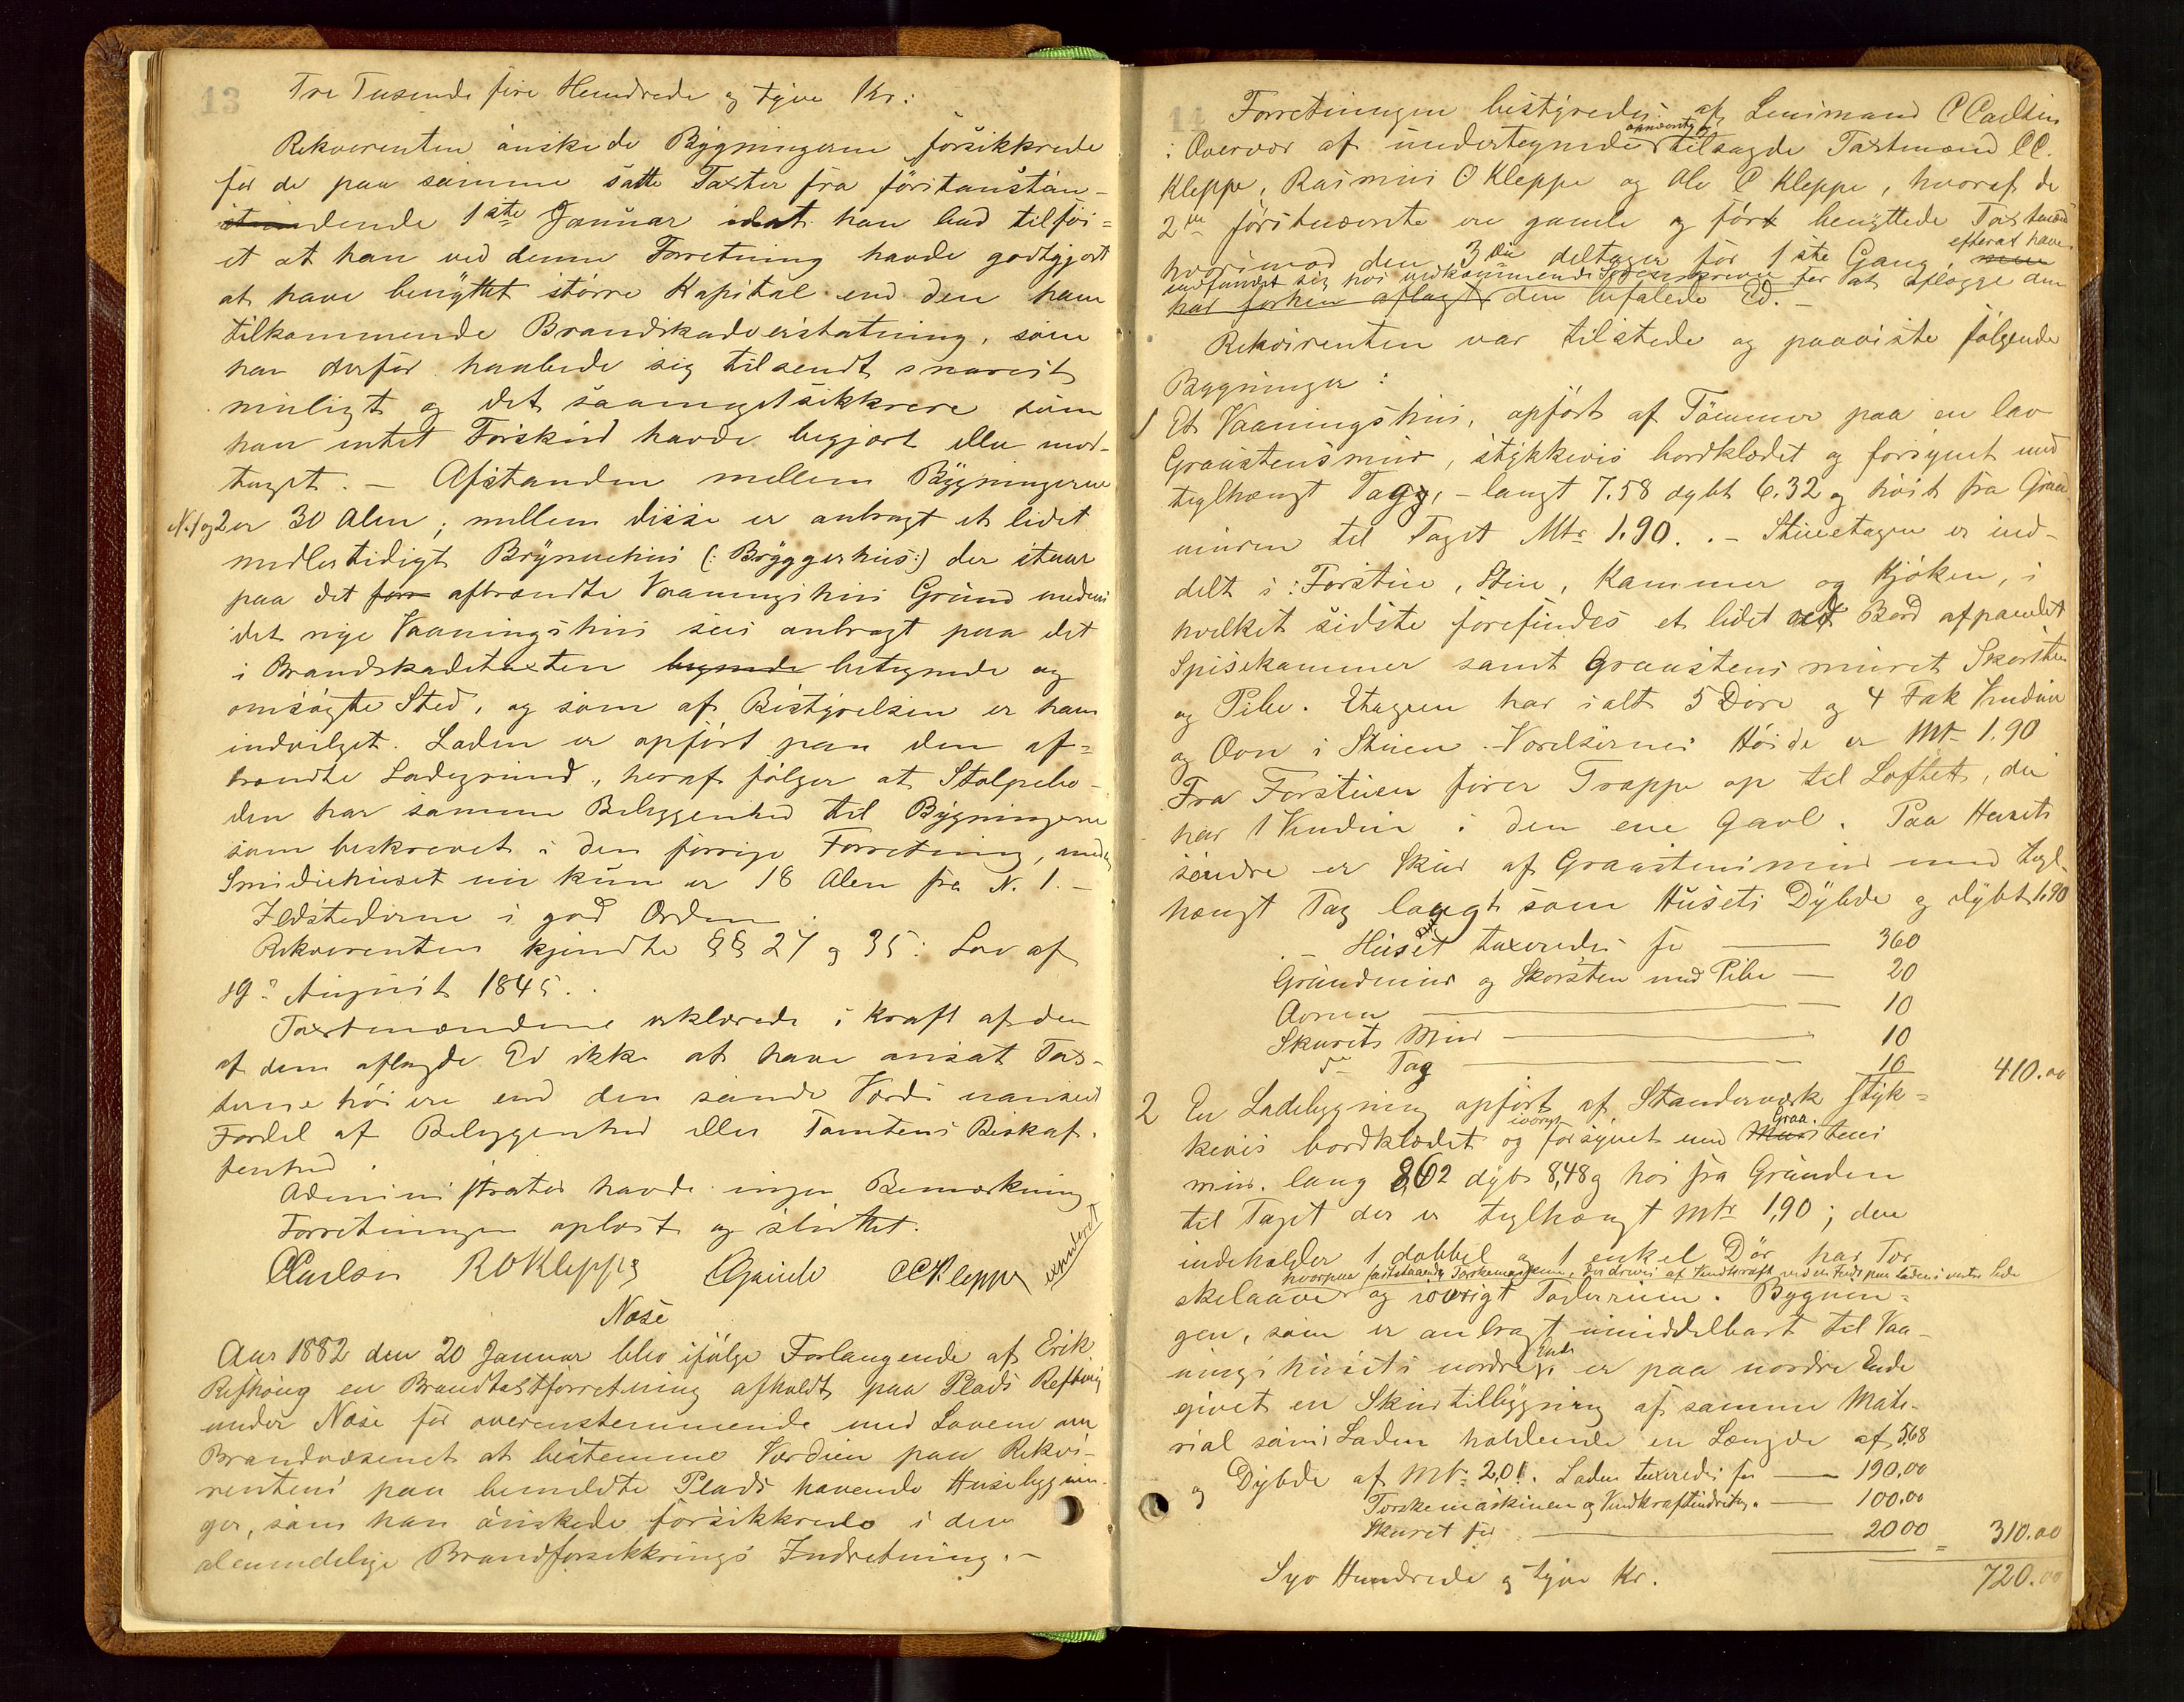 13
Tre Tusende fire Hundrede og tyve Kr:
Rekvirenten ønskede Bygningerne forsikkrede
for de paa samme satte Taxter fra førstanstun-
dende 1ste Januar idet han bad tilføi-
et at han ved denne Forretning havde godtgjort
at have benyttet større Kapital end den ham
tilkommende Brandskadeerstatning, som
han derfor haabede sig tilsendt snarest
muligt og det saameget sikkrere som
han intet Forskud havde begjært eller mod-
taget. - Afstanden mellem Bygningerne
N. 1 og 2 er 30 Alen; mellem disse er anbragt et lidet
midlertidigt Brynnehus (: Bryggerhus:) der staar
paa det for afbrændte Vaaningshus Grund medens
det nye Vaaningshus sees anbragt paa det
i Brandskadetaxten betegnede og
omsøgte Sted, og som af Bestyrelsen er ham
indvilget. Laden er opført paa den af-
brændte Ladegrund, heraf følger at Stolpebo-
den har samme Beliggenhed til Bygningerne
som beskrevet i den forrige Forretning, medens
Smidiehuset nu kun er 18 Alen fra N. 1. -
Ildstederne i god Orden.
Rekvirenten kjendte §§ 27 og 35: Lov af
19de August 1845.
Taxtmændene erklærede i Kraft af den
af dem aflagde Ed ikke at have ansat Tax-
terne høiere end den sande Værdi uanseet
Fordel af Beliggenhed eller Tomtens Beskaf-
fenhed.
Administrator havde ingen Bemærkning
Forretningen oplæst og sluttet.
CCarlsen ROKleppe CCKleppe
Nose
Aar 1882 den 20 Januar blev ifølge Forlangende af Erik
Refhoug en Brandtaxtforretning afholdt paa Plads Refhoug
under Nose for overensstemmende med Loven om
Brandvæsenet at bestemme Værdien paa Rekvi-
rentens paa bemeldte Plads havende Husebygnin-
ger, som han ønskede forsikkrede i den
alemindelige Brandforsikkrings Indretning. -
14
Forretningen bestyredes af Lensmand C Carlsen
i Overvær af undertegnede opnævnte og tilsagde Taxtmænd CC.
Kleppe, Rasmus O Kleppe og Ole C Kleppe, hvoraf de
2de førstnævnte ere gamle og før benyttede Taxtmænd
hvorimod den 3die deltager for 1ste Gang, efterat have
indfundet sig hos vedkommende Sorenskriver for at aflægge den
har forhen aflagt den befalede Ed. -
Rekvirenten var tilstede og paaviste følgende
Bygninger:
1 Et Vaaningshus, opført af Tømmer paa en lav
Graastensmur, stykkevis bordklædet og forsynet med
teglhængt Tag, - langt 7.58 dybt 6.32 og høit fra Grund
muren til Taget Mtr 1.90. - Stueetagen er ind-
delt i: Forstue, Stue, Kammer og Kjøken, i
hvilket sidste forefindes et lidet med Bord afpanelet
Spisekammer samt Graastensmuret Skorsten
og Pibe. Etagen har ialt 5 Døre og 4 Fak Vinduer
og Ovn i Stuen. Værelsernes Høide er Mtr 1.90
Fra Forstuen fører Trappe op til Loftet, der
har 1 Vindue i den ene Gavl. Paa Husets
søndre er Skur af Graastensmur med tegl-
hængt Tag langt som Husets Dybde og dybt 1.90
Huset taxeredes for — 360
Grundmur og Skorsten med Pibe — 20
Ovnen — 10
Skurets Mur — 10
do Tag — 10 410.00
2 En Ladebygning opført af Standerværk styk-
kevis bordklædet og iøvrigt forsynet med Graastens
mur. lang 8,62 dyb 8,48 og høi fra Grunden
til Taget der er teglhængt Mtr 1,90; den
indeholder 1 dobbel og 1 enkel Dør, har Tor
hvorpaa faststaaende Torskemaskine, der drives af Vindkraft
skelaave og iøvrigt Foderrum. Bygnin-
gen, som er anbragt umiddelbart til Vaa-
ningshusets nordre Ende, er paa nordre Ende
givet en Skurtilbygning af samme Mate-
rial som Laden holdende en Længde af 5,68
og Dybde af Mtr 2,01. Laden taxeredes for — 190,00
Torskemaskinen og Vindkraftindretn. — 100.00
Skuret for — 20 00 = 310.00
Syv Hundrede og tyve Kr. 720.00